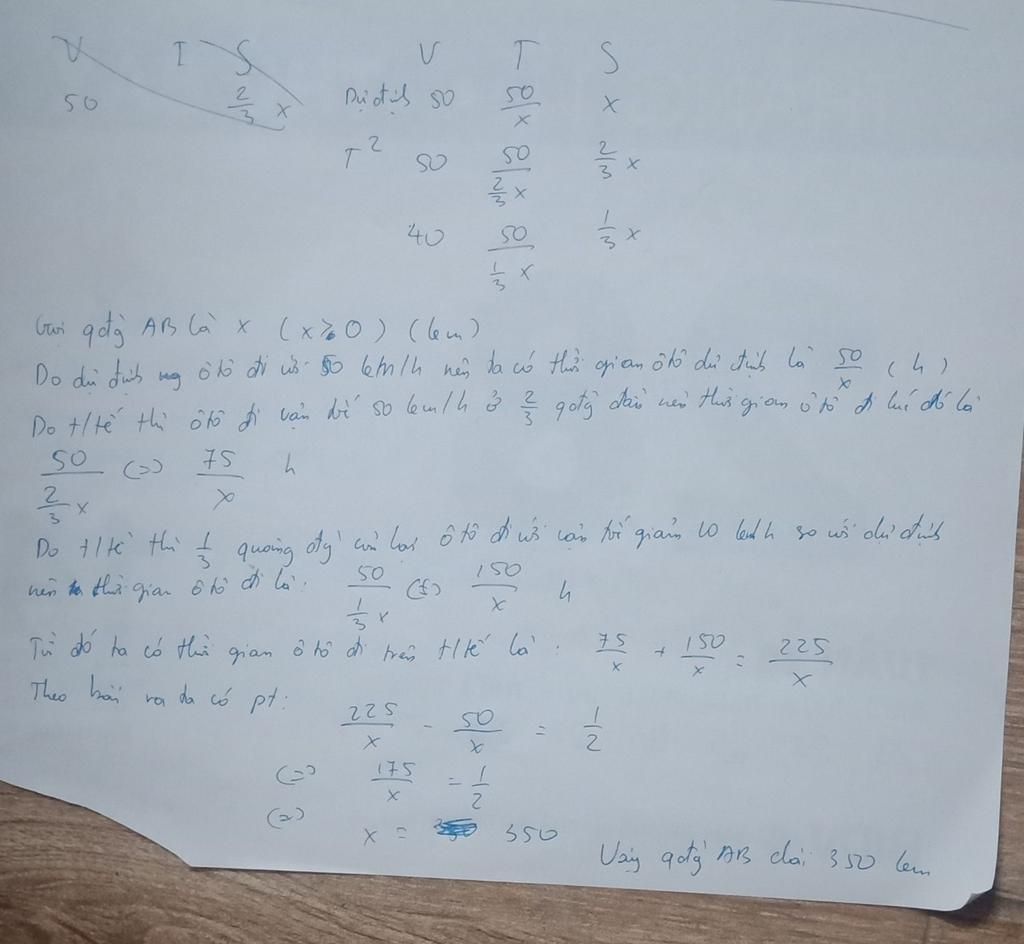 V T S
50 2/3 x
V T S
Dự định 50 50/x x
T² 50 50/(2/3 x) 2/3 x
40 50/(1/3 x) 1/3 x
Gọi qđg AB là x (x > 0) (km)
Do dự định ôtô đi với 50 km/h nên ta có thời gian ôtô dự định là 50/x (h)
Do t/tế thì ôtô đi vận tốc 50 km/h ở 2/3 qđg đầu nên thời gian ôtô đi lúc đó là
50/(2/3 x) (=) 75/x h
Do t/tế thì 1/3 quãng đg còn lại ôtô đi với vận tốc giảm 10 km/h so với dự định
nên thời gian ôtô đi là: 50/(1/3 x) (=) 150/x h
Từ đó ta có thời gian ôtô đi trên t/tế là: 75/x + 150/x = 225/x
Theo bài ra ta có pt:
225/x - 50/x = 1/2
(=) 175/x = 1/2
(=) x = 350
Vậy qđg AB dài 350 km